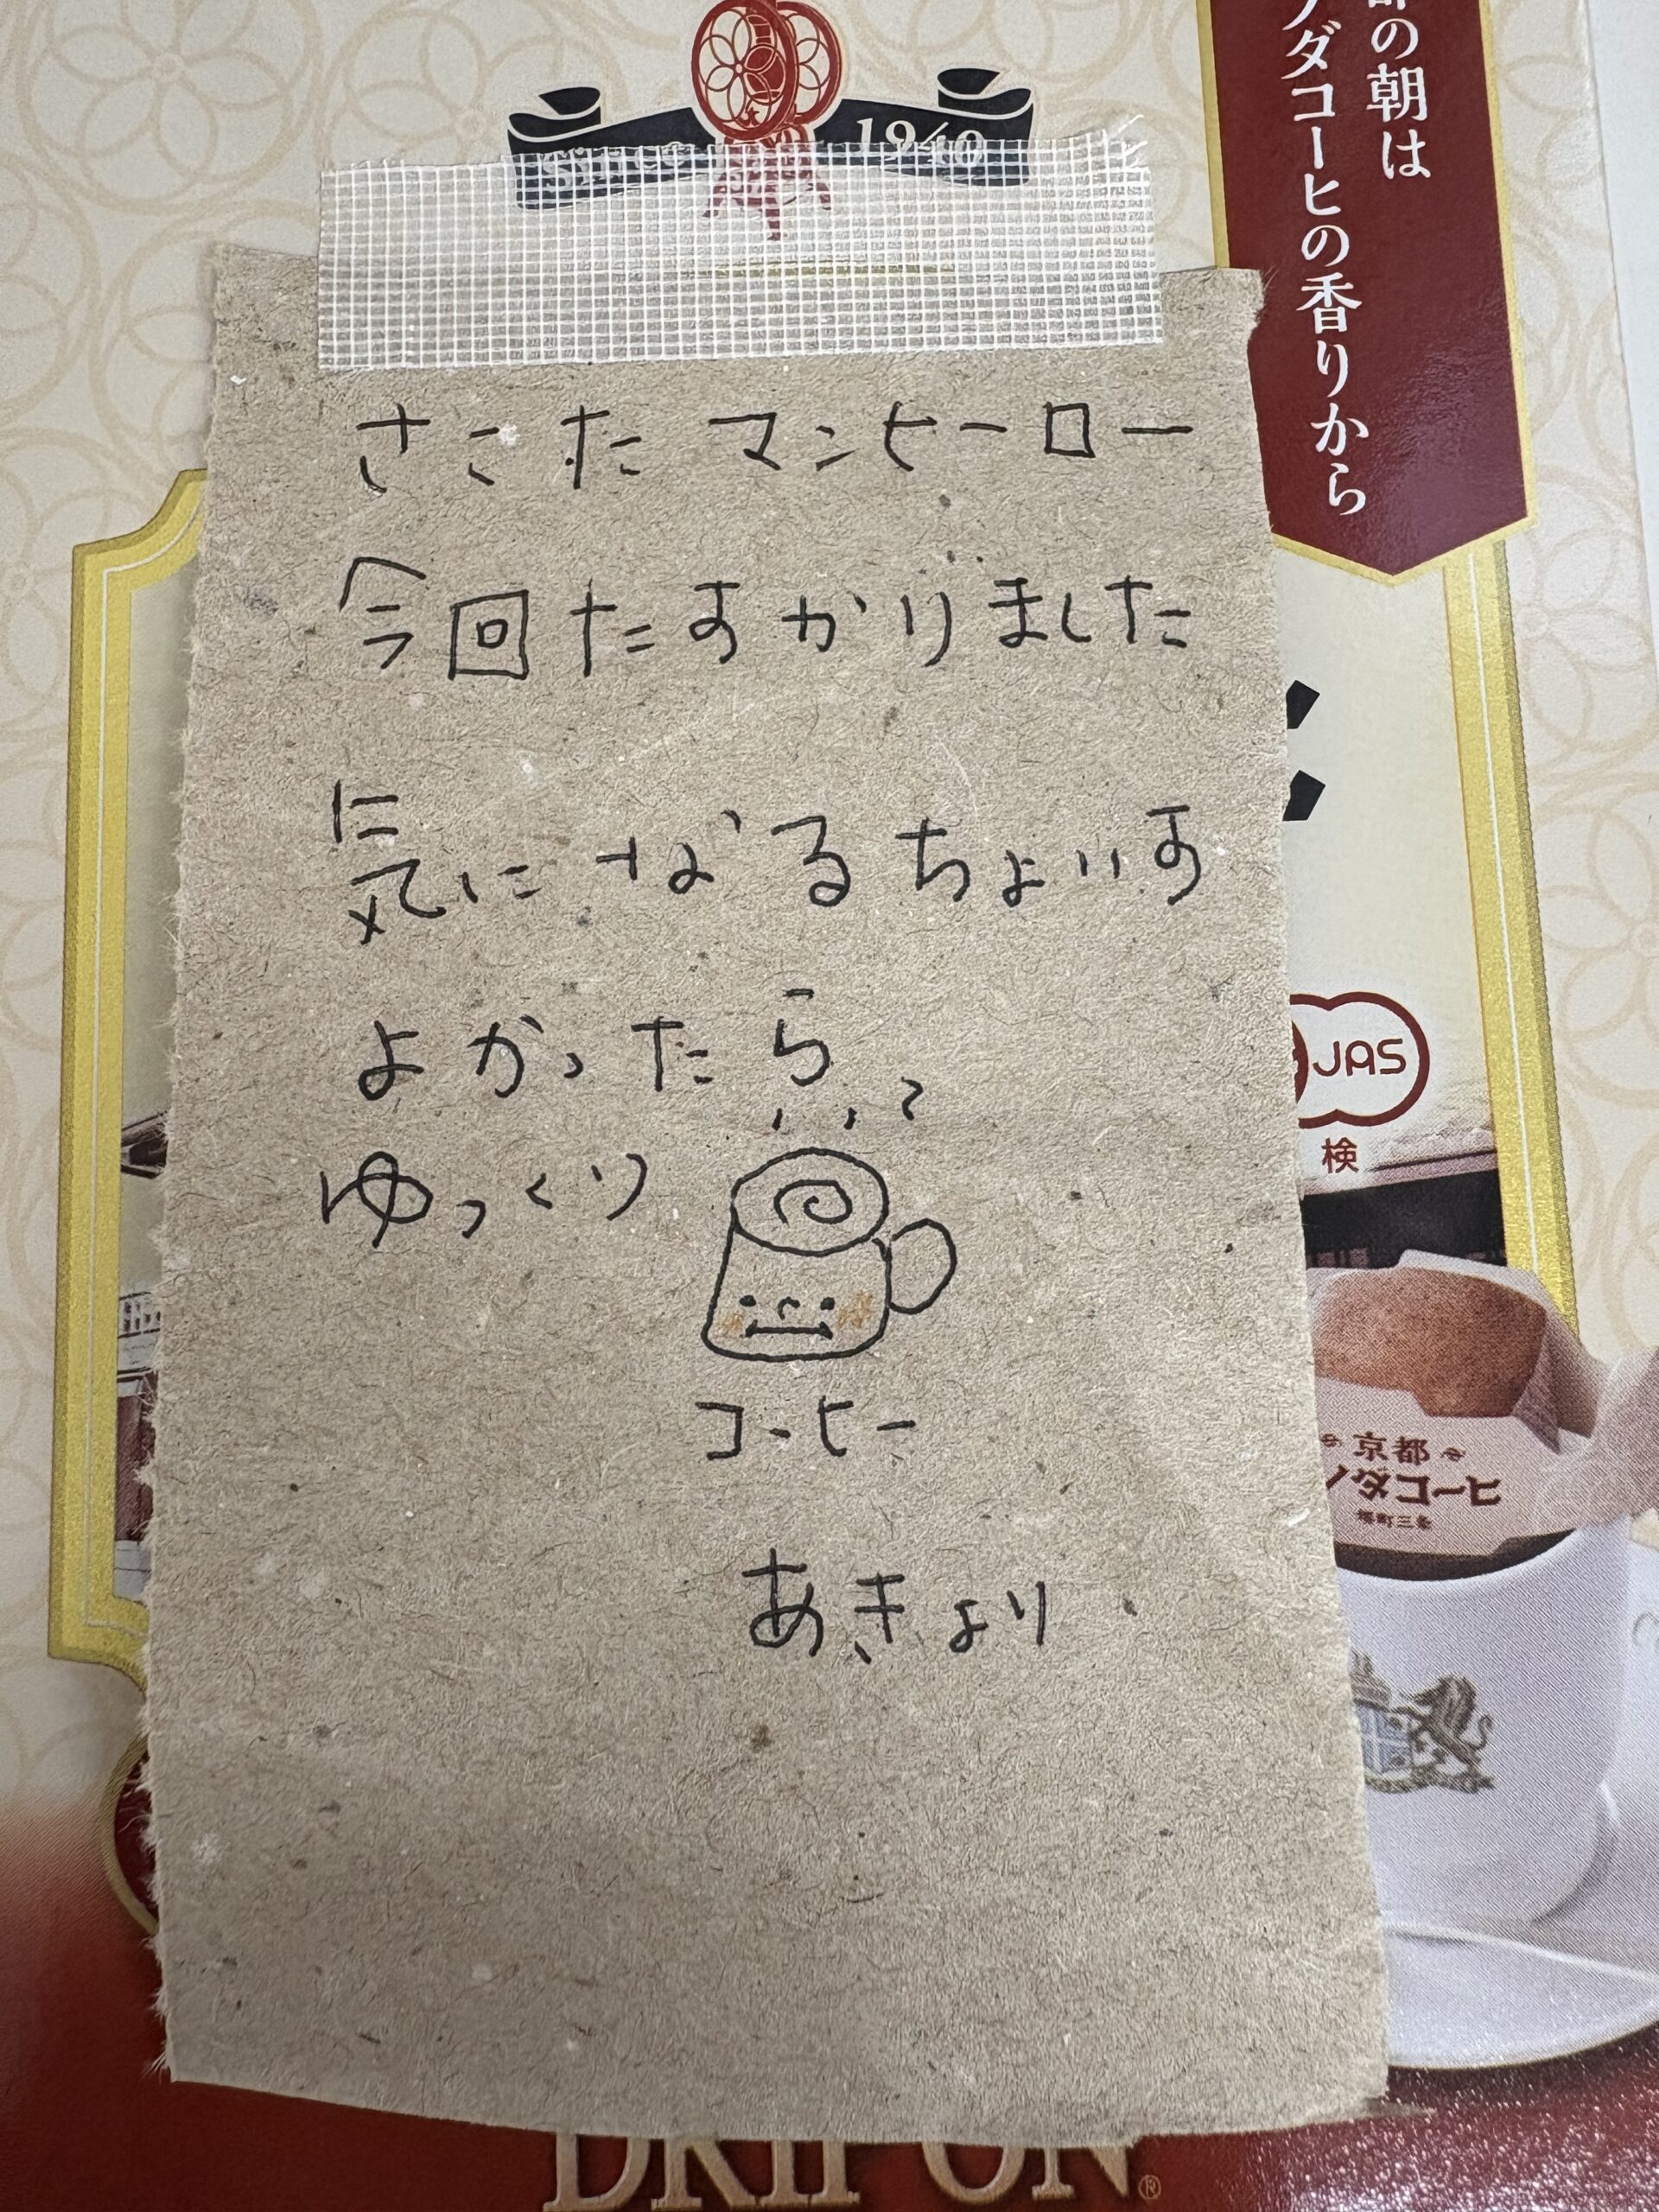 Since 1940
都の朝は
ノダコーヒの香りから
さこた マンヒーロー
今回たすかりました
気になるちょいす
よかったら
ゆっくり
コーヒー
あきより
JAS
検
京都
ノダコーヒ
堺町三条
DRIP ON®